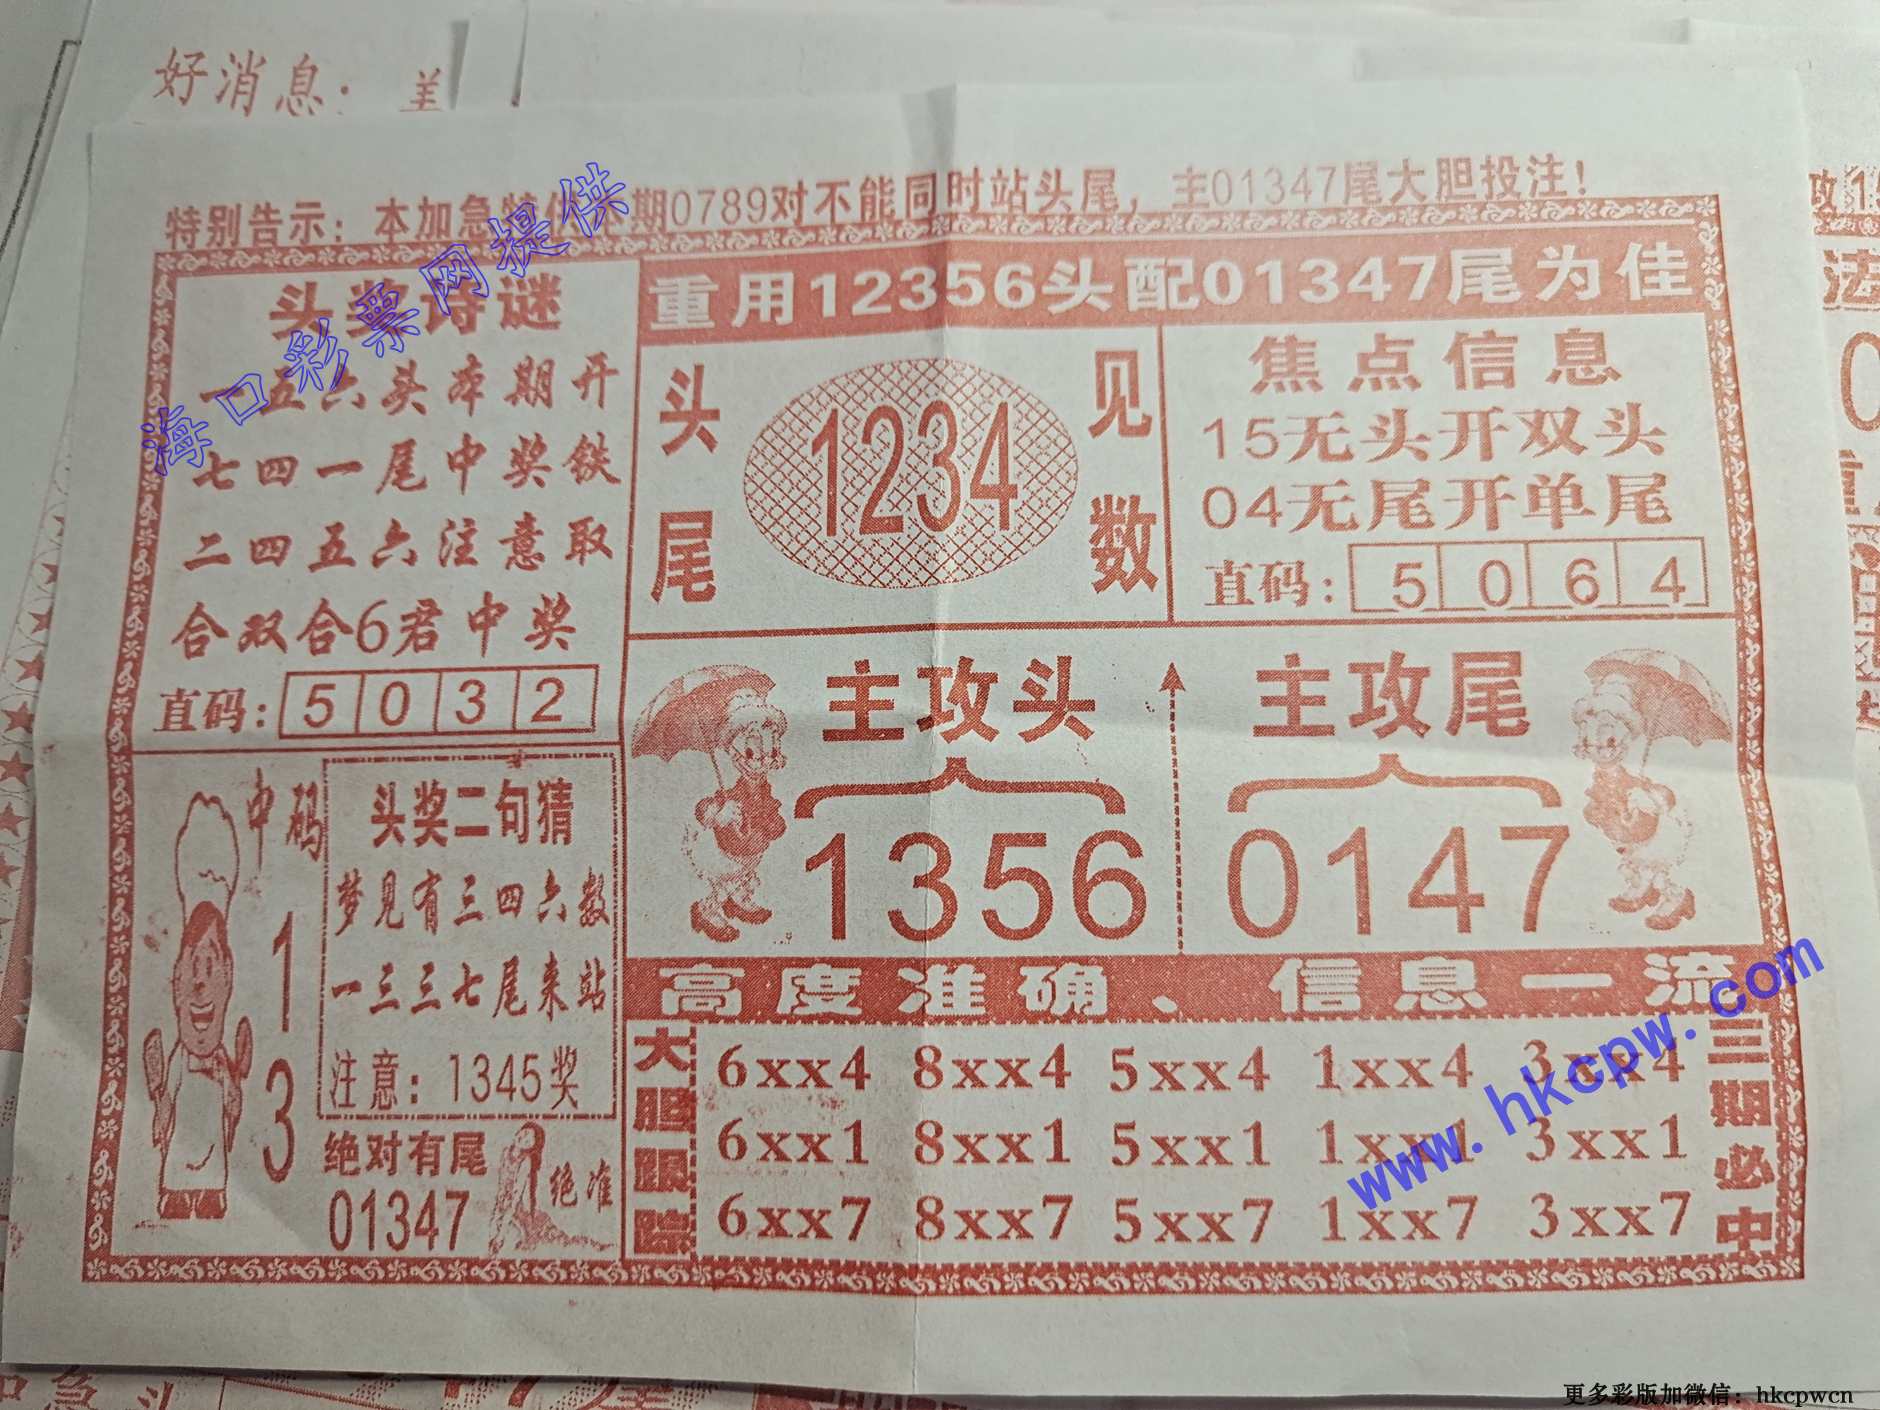 好消息：
特别告示：本加急特供本期0789对不能同时站头尾，主01347尾大胆投注！
海口彩票网提供
头奖诗谜
一五六头本期开
七四一尾中奖铁
二四五六注意取
合双合6君中奖
直码：5032
重用12356头配01347尾为佳
头尾
1234
见数
焦点信息
15无头开双头
04无尾开单尾
直码：5064
中码
13
头奖二句猜
梦见有三四六数
一三三七尾来站
注意：1345奖
绝对有尾
01347
绝准
主攻头
1356
主攻尾
0147
高度准确、信息一流
大胆跟踪
6xx4 8xx4 5xx4 1xx4 3xx4
6xx1 8xx1 5xx1 1xx1 3xx1
6xx7 8xx7 5xx7 1xx7 3xx7
三期必中
www.hkcpw.com
更多彩版加微信：hkcpwcn